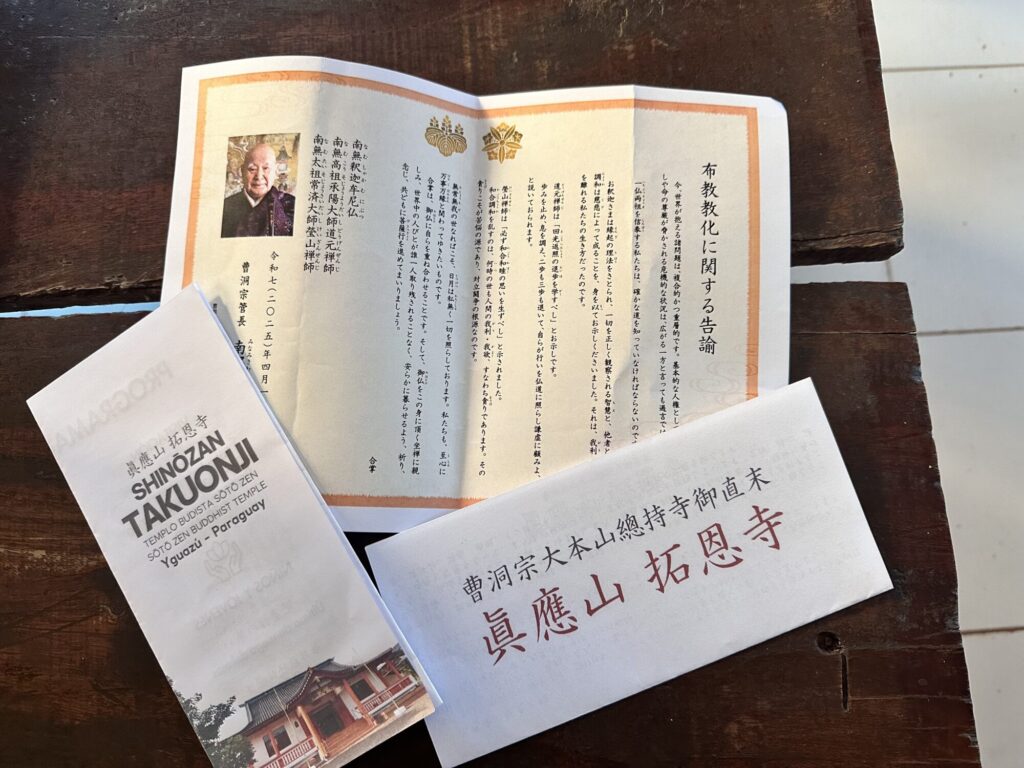 布教教化に関する告諭
今、世界が抱える諸問題は、複合的かつ重層的です。基本的な人権と
しや命の尊厳が脅かされる危機的な状況は、広がる一方と言っても過言では
一仏両祖を信奉する私たちは、確かな道を知っていなければならないので
お釈迦さまは縁起の理法をさとられ、一切を正しく観察される智慧と、他者と
調和は慈悲によって成ることを、身を以てお示しくださいました。それは、我利
を離れる私たちの生き方だったのです。
道元禅師は「回光返照の退歩を学すべし」とお示しです。
歩みを止め、息を調え、二歩も三歩も退いて、自らが行いを仏道に照らし謙虚に顧みよ、
と説いておられます。
瑩山禅師は「必ず和合和睦の思いを生ずべし」と示されました。
和合調和を乱すのは、何時の世も人間の我利・我欲、すなわち貪りであります。その
貪りこそが苦悩の源であり、対立闘争の根源なのです。
無常無我の世なればこそ、日月は私無く一切を照らしております。私たちも、至心に
万事万縁と関わってゆきたいものです。
合掌は、御仏に自らを重ね合わせることです。そして、御仏をこの身に頂く坐禅に親
しみ、世界中の人びとが誰一人取り残されることなく、安らかに暮らせるよう、祈り、
念じ、共どもに菩薩行を進めてまいりましょう。
合掌
南無釈迦牟尼仏
南無高祖承陽大師道元禅師
南無太祖常済大師瑩山禅師
令和七(二〇二五)年四月一
曹洞宗管長 南
眞應山 拓恩寺
SHINŌZAN
TAKUONJI
TEMPLO BUDISTA SŌTŌ ZEN
SŌTŌ ZEN BUDDHIST TEMPLE
Yguazú - Paraguay
曹洞宗大本山總持寺御直末
眞應山 拓恩寺